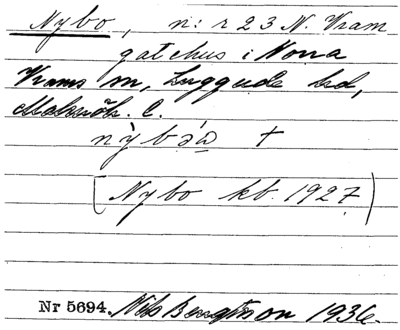 Nybo, n: r 23 N. Vram
gatehus i Norra
Vrams sn, Luggude hd,
Malmöh. l.
nỳbóa †
(Nybo kb. 1927)
Nr 5694. Nils Bengtsson 1936.